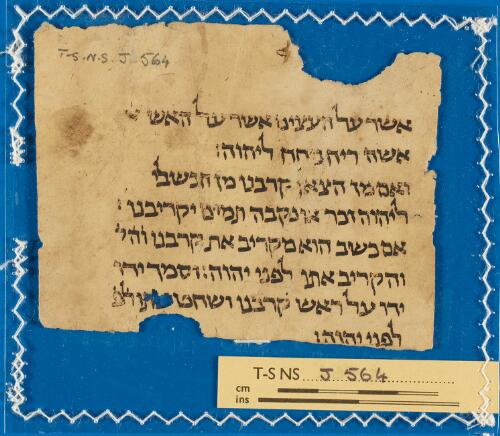 T-S.N.S. J 564
אשר על העצים אשר על האש
אשה ריח ניחח ליהוה׃
ואם מן הצאן קרבנו מן הכשבי
ליהוה זכר או נקבה תמים יקריבנו׃
אם כשוב הוא מקריב את קרבנו והק
והקריב אתו לפני יהוה׃ וסמך ידו
ידו על ראש קרבנו ושחט
לפני יהוה׃
T-S NS J 564
cm
ins